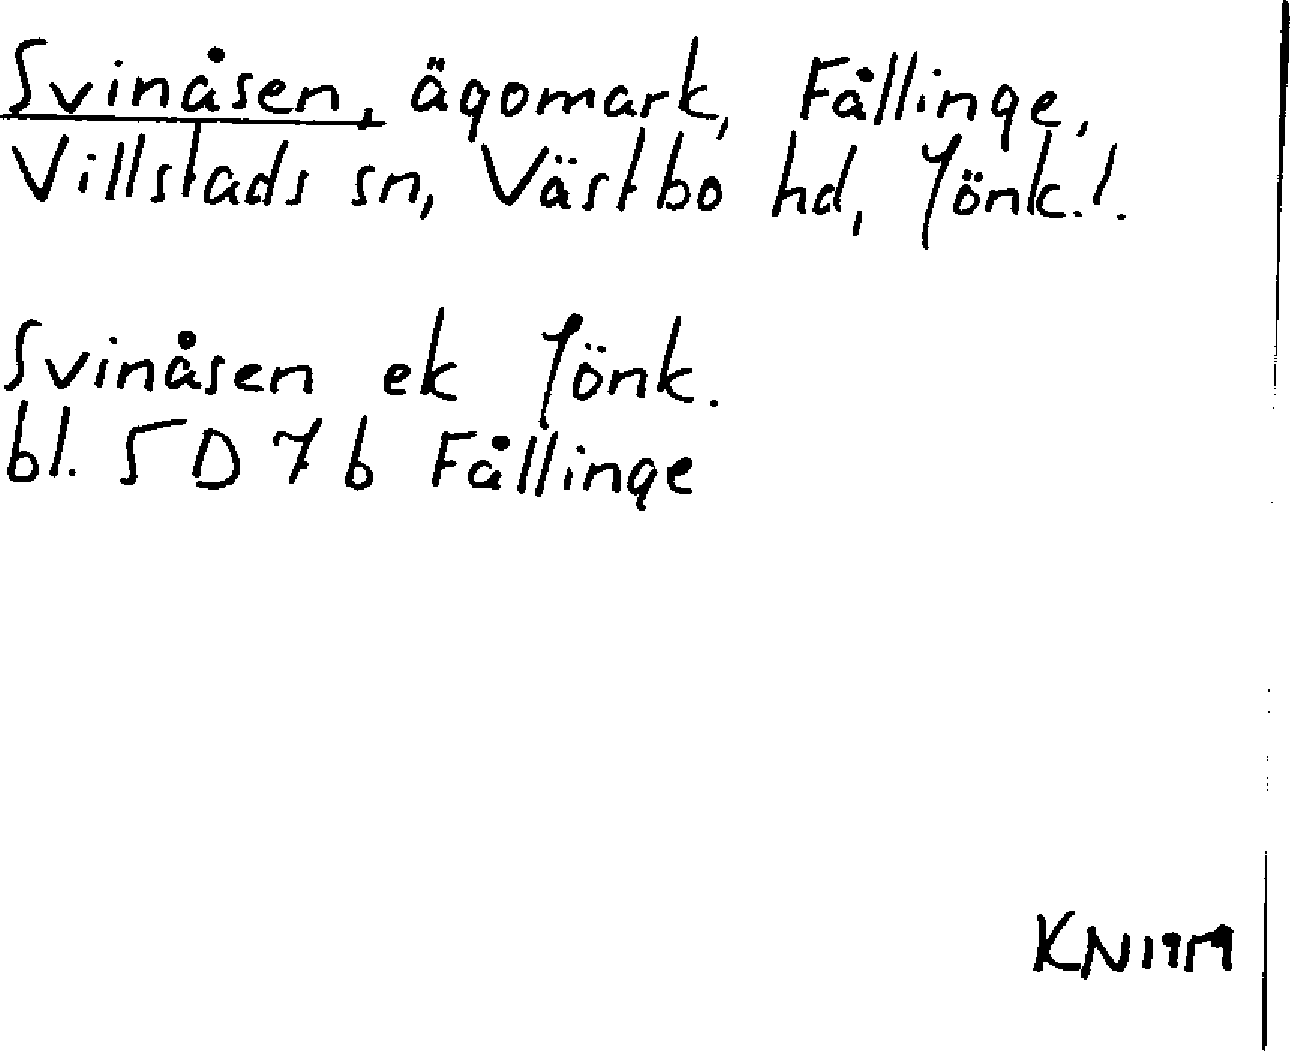 Svinåsen, ägomark, Fållinge,
Villstads sn, Västbo hd, Jönk.l.
Svinåsen ek Jönk.
bl. 5 D 7 b Fållinge
KN 1959